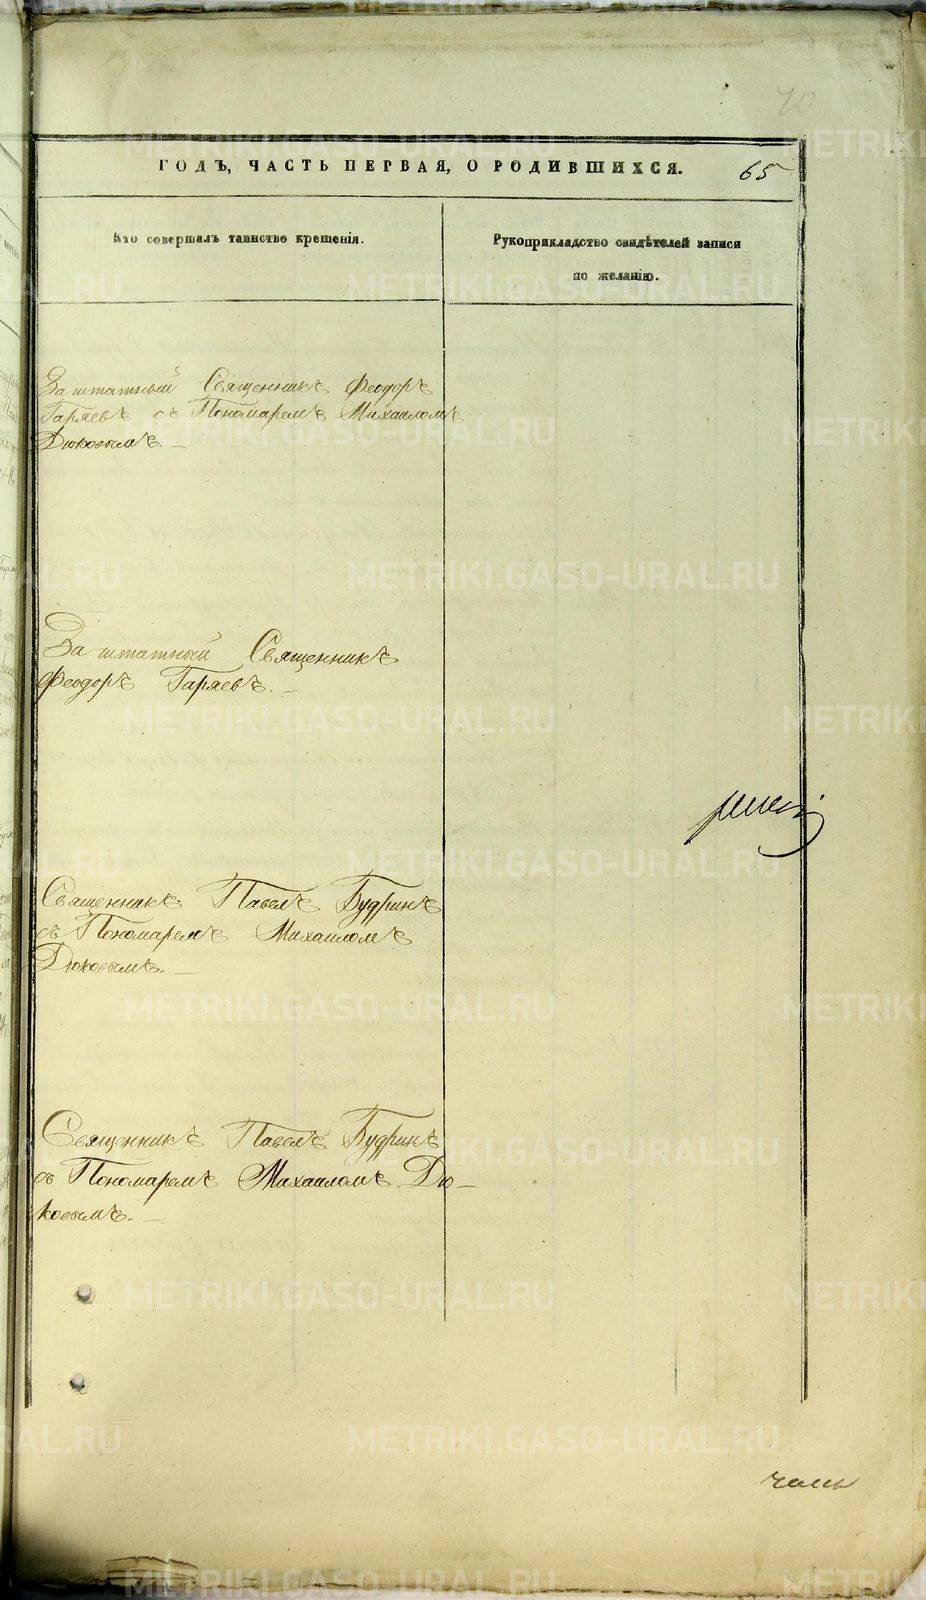 70
ГОДЪ, ЧАСТЬ ПЕРВАЯ, О РОДИВШИХСЯ.
65
Кто совершалъ таинство крещенія.
Рукоприкладство свидѣтелей записи
по желанію.
Заштатный Священникъ Феодоръ
Гаряевъ съ Пономаремъ Михаиломъ
Дюковымъ. —
Заштатный Священникъ
Феодоръ Гаряевъ. —
Священникъ Павелъ Будринъ
съ Пономаремъ Михаиломъ
Дюковымъ. —
Священникъ Павелъ Будринъ
съ Пономаремъ Михаиломъ Дю-
ковымъ. —
METRIKI.GASO-URAL.RU